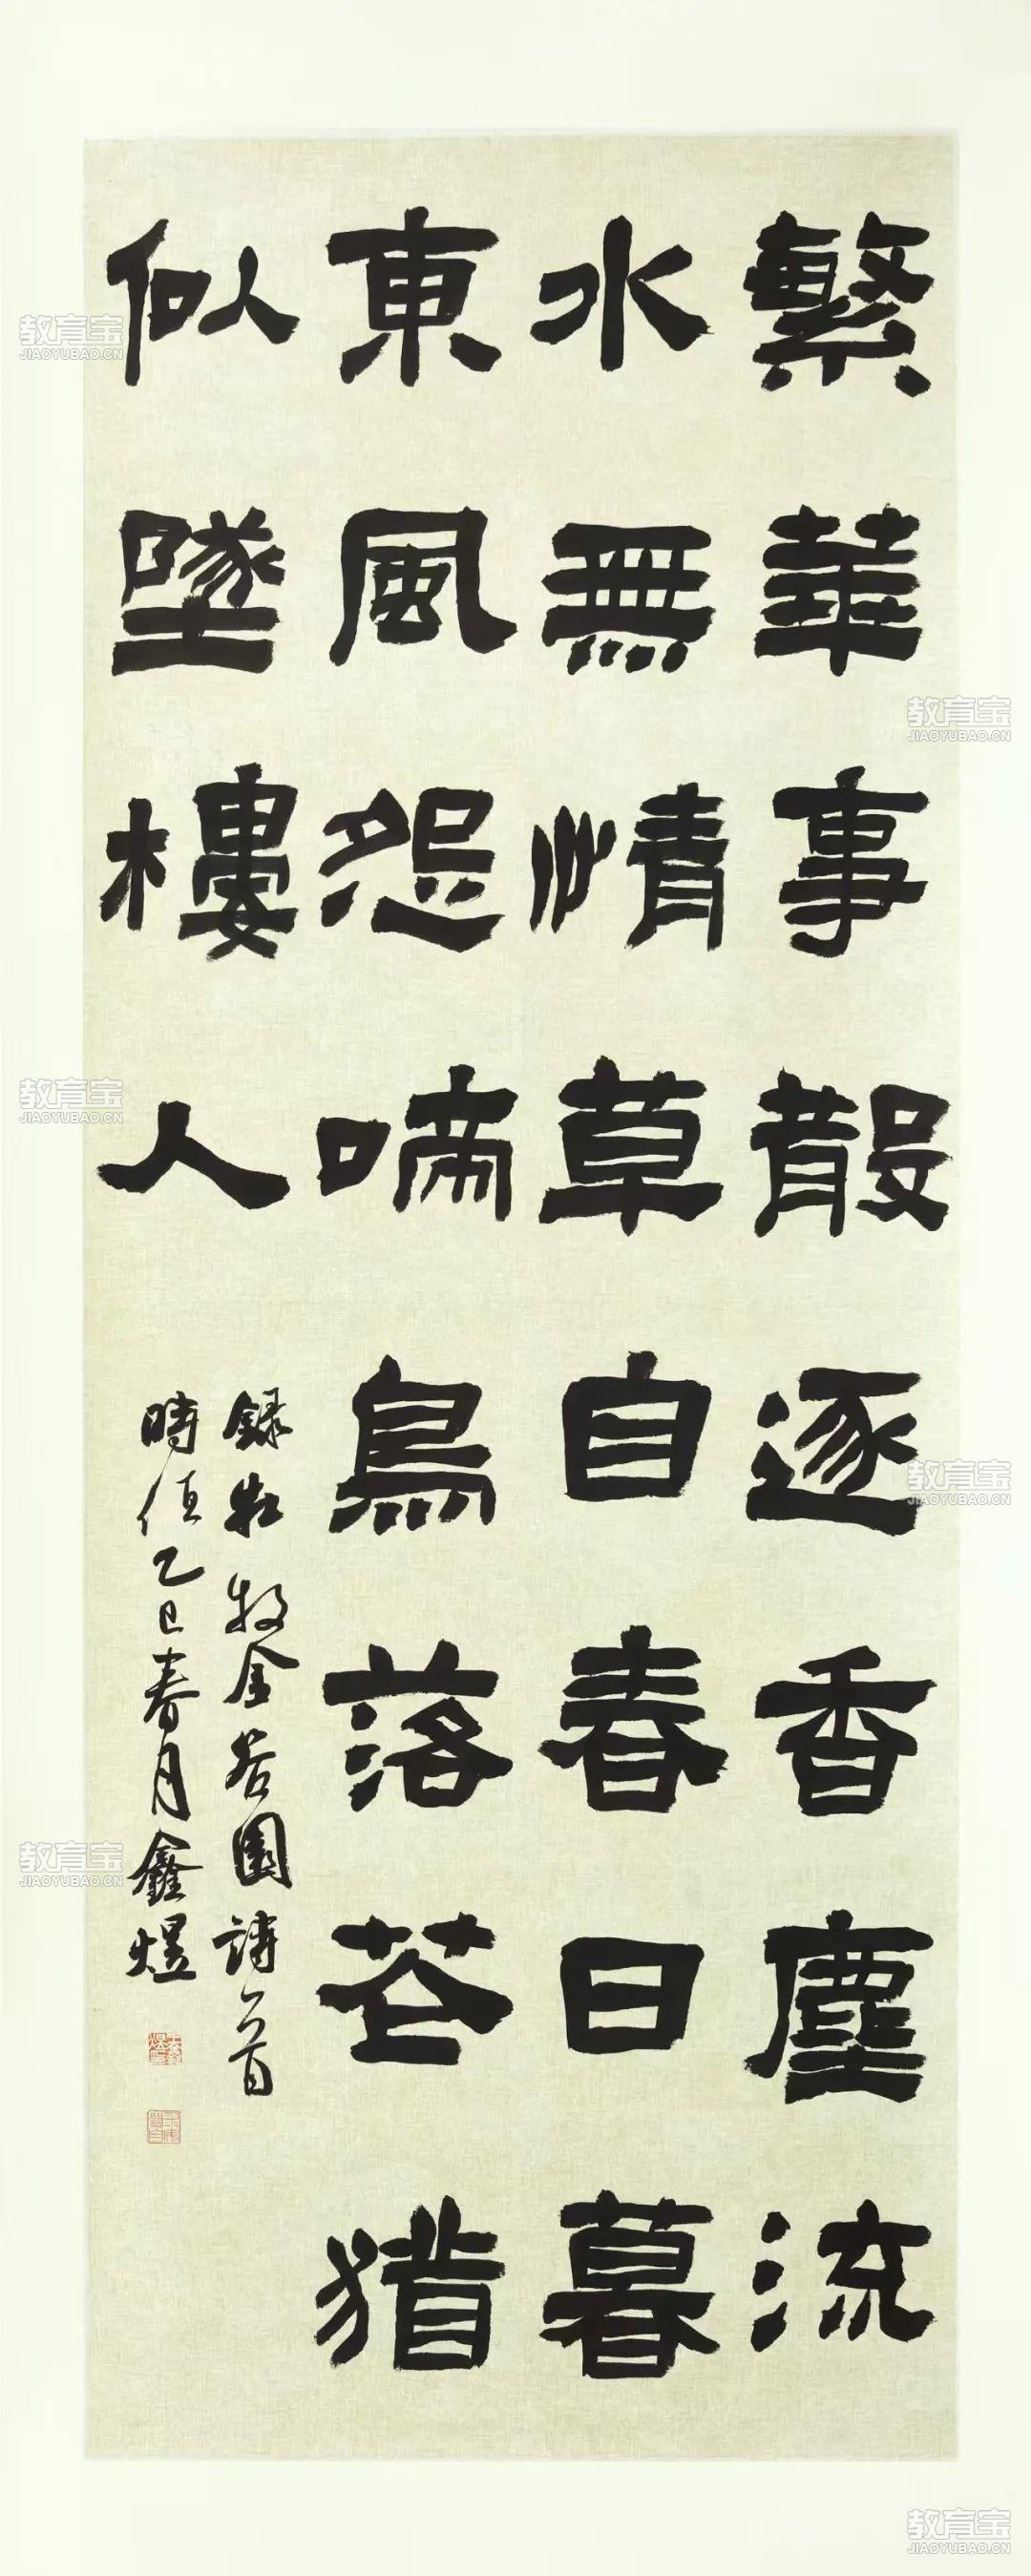 繁華事散逐香塵流
水無情草自春日暮
東風怨啼鳥落花猶
似墜樓人
錄杜牧金谷園詩一首
時值乙巳春月鑫煜
教育宝
JIAOYUBAO.CN
教育宝
JIAOYUBAO.CN
教育宝
JIAOYUBAO.CN
教育宝
JIAOYUBAO.CN
教育宝
JIAOYUBAO.CN
教育宝
JIAOYUBAO.CN